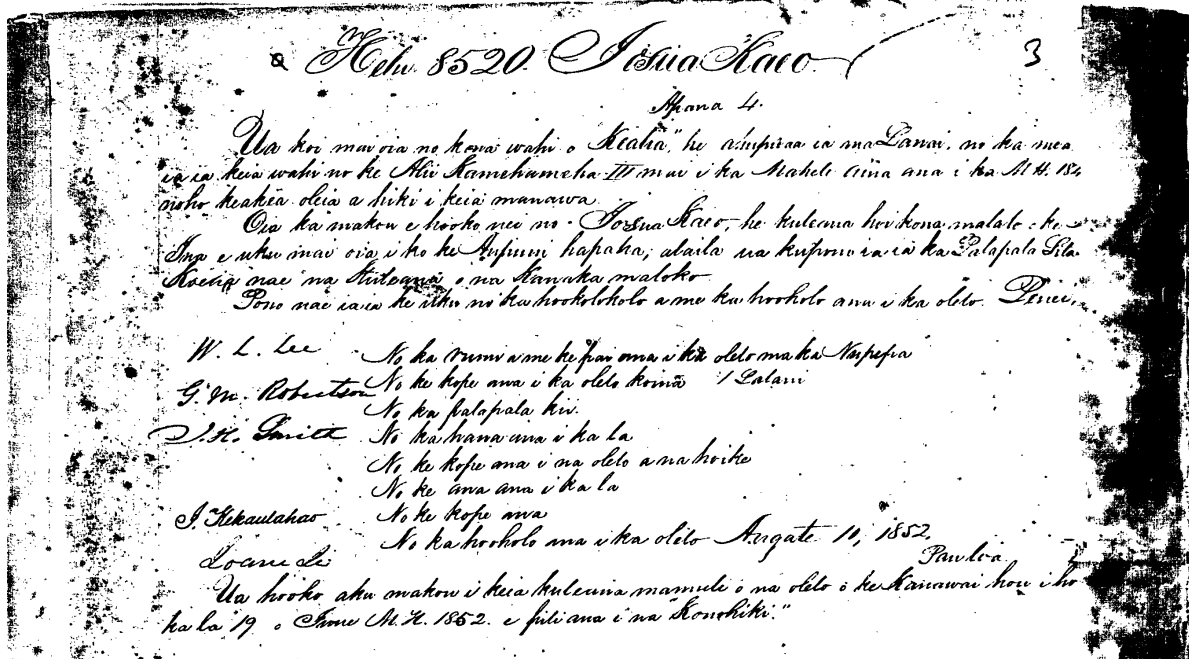 Helu 8520. Iosua Kaeo 3
Apana 4.
Ua koi mai oia no kona wahi o "Kealia", he ahupuaa ia ma Lanai, no ka mea
ia ia keia wahi no ke Alii Kamehameha III mai i ka Mahele aina ana i ka M.H. 184
noho keakea oleia a hiki i keia manawa.
Oia ka makou e hooko nei no Iosua Kaeo, he kuleana hoi kona malalo o ke
Ina e uku mai oia i ko ke Aupuni hapaha, alaila ua kupono ia ia ka Palapala Sila
Koe nae na Kuleana o na Kanaka maloko
Pono nae ia ia ke uku no ka hookolokolo a me ka hooholo ana i ka olelo. Penei,
W. L. Lee No ka rumi a me ke pai ana i ka olelo ma ka Nupepa
No ke kope ana i ka olelo koina 1 Lalani
G. M. Robertson
No ka palapala kii.
J. H. Smith No ka hana ana i ka la
No ke kope ana i na olelo a na hoike
No ke ana ana i ka la
J. Kekaulahao No ke kope ana
No ka hooholo ana i ka olelo Augate 10, 1852.
Ioane Ii Paulia
Ua hooko aku makou i keia kuleana mamuli o na olelo o ke Kanawai hou i ho
ka la 19 o Iune M.H. 1852. e pili ana i na "Konohiki."